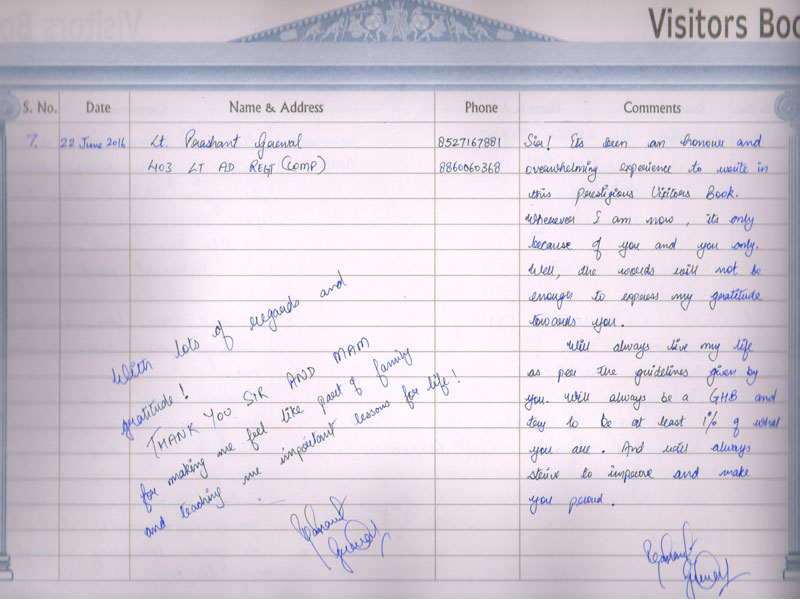 Visitors Boo
S. No. Date Name & Address Phone Comments
7. 22 June 2016 Lt. Prashant Grewal 8527167881 Sir! Its been an honour and
403 LT AD REGT (COMP) 8860060368 overwhelming experience to write in
this prestigious Visitors Book.
Wherever I am now, its only
because of you and you only.
Well, the words will not be
enough to express my gratitude
towards you.
Will always live my life
as per the guidelines given by
you. Will always be a GHB and
try to be at least 1% of what
you are. And will always
strive to improve and make
you proud.
With lots of regards and
gratitude!
THANK YOU SIR AND MAM
for making me feel like part of family
and teaching me important lessons for life!